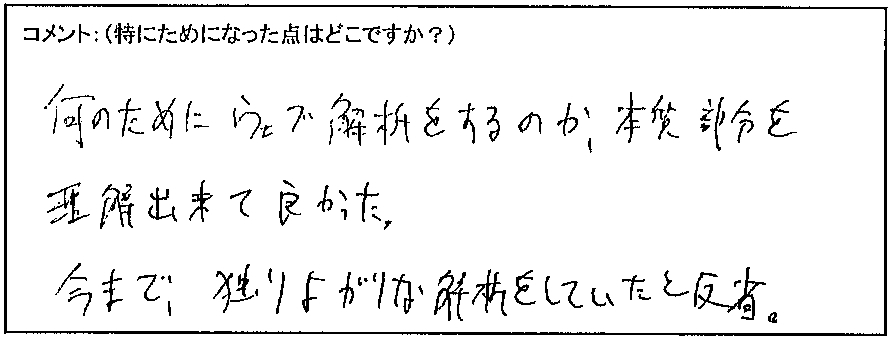 コメント:(特にためになった点はどこですか?)
何のためにウェブ解析をするのか、本質部分を
理解出来て良かった。
今まで、独りよがりな解析をしていたと反省。